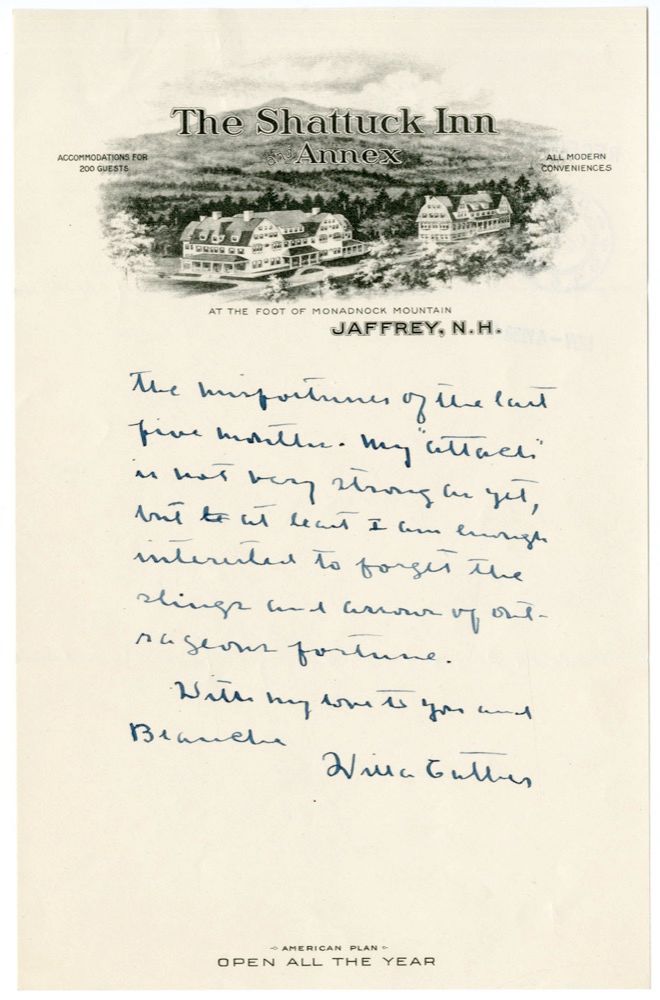 The Shattuck Inn
and Annex
ACCOMMODATIONS FOR
200 GUESTS
ALL MODERN
CONVENIENCES
AT THE FOOT OF MONADNOCK MOUNTAIN
JAFFREY, N.H.
the misfortunes of the last
five months. My "attack"
is not very strong as yet,
but at least I am enough
interested to forget the
slings and arrows of out-
rageous fortune.
With my love to you and
Blanche
Willa Cather
AMERICAN PLAN
OPEN ALL THE YEAR